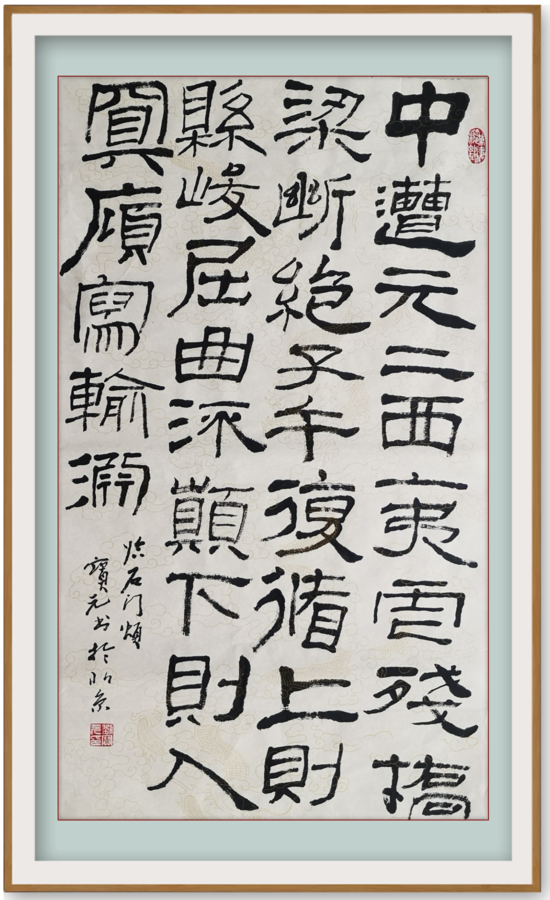 中遭元二西夷虐殘橋
梁斷絕子午復循上則
縣峻屈曲流顛下則入
冥廎寫輸淵
臨石门頌
寶元书於京